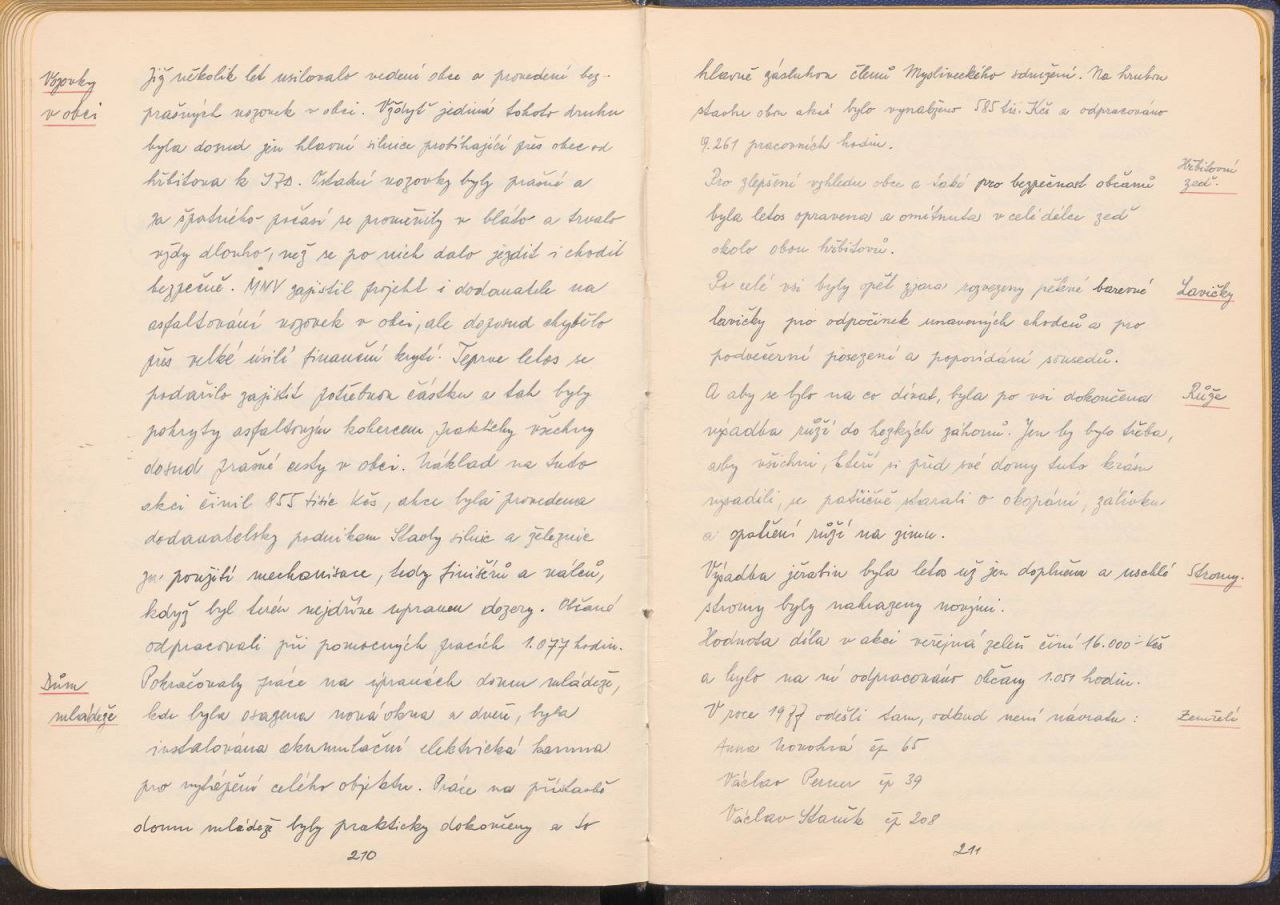 Vozovky
v obci
Již několik let usilovalo vedení obce o provedení bez-
prašných vozovek v obci. Vždyť jediná tohoto druhu
byla dosud jen hlavní silnice probíhající přes obec od
hřbitova k JZD. Ostatní vozovky byly prašné a
za špatného počasí se proměnily v bláto a trvalo
vždy dlouho, než se po nich dalo jezdit i chodit
bezpečně. MNV zajistil projekt i dodavatele na
asfaltování vozovek v obci, ale doposud chybělo
přes velké úsilí finanční krytí. Teprve letos se
podařilo zajistit potřebnou částku a tak byly
pokryty asfaltovým kobercem prakticky všechny
dosud prašné cesty v obci. Náklad na tuto
akci činil 855 tisíc Kčs, akce byla provedena
dodavatelsky podnikem Stavby silnic a železnic
za použití mechanisace, tedy finišérů a válců,
když byl terén nejdříve upraven dozery. Občané
odpracovali při pomocných pracích 1.077 hodin.
Dům
mládeže
Pokračovaly práce na úpravách domu mládeže,
kde byla osazena nová okna a dveře, byla
instalována akumulační elektrická kamna
pro vytápění celého objektu. Práce na přístavbě
domu mládeže byly prakticky dokončeny a to
210
hlavně zásluhou členů Mysliveckého sdružení. Na hrubou
stavbu obou akcí bylo vynaloženo 585 tis. Kčs a odpracováno
9.261 pracovních hodin.
Hřbitovní
zeď.
Pro zlepšení vzhledu obce a také pro bezpečnost občanů
byla letos opravena a omítnuta v celé délce zeď
okolo obou hřbitovů.
Lavičky
Po celé vsi byly opět zjara rozvezeny pěkné barevné
lavičky pro odpočinek unavených chodců a pro
podvečerní posezení a popovídání sousedů.
Růže
A aby se bylo na co dívat, byla po vsi dokončena
výsadba růží do hezkých záhonů. Jen by bylo třeba,
aby všichni, kteří si před své domy tuto krásu
vysadili, se patřičně starali o okopání, zálivku
a opatření růží na zimu.
Stromy.
Výsadba jeřabin byla letos už jen doplněna a uschlé
stromy byly nahrazeny novými.
Hodnota díla v akci veřejná zeleň činí 16.000.- Kčs
a bylo na ní odpracováno občany 1.051 hodin.
Zemřelí
V roce 1977 odešli tam, odkud není návratu :
Anna Novotná čp 65
Václav Perner čp 39
Václav Staněk čp 208
211